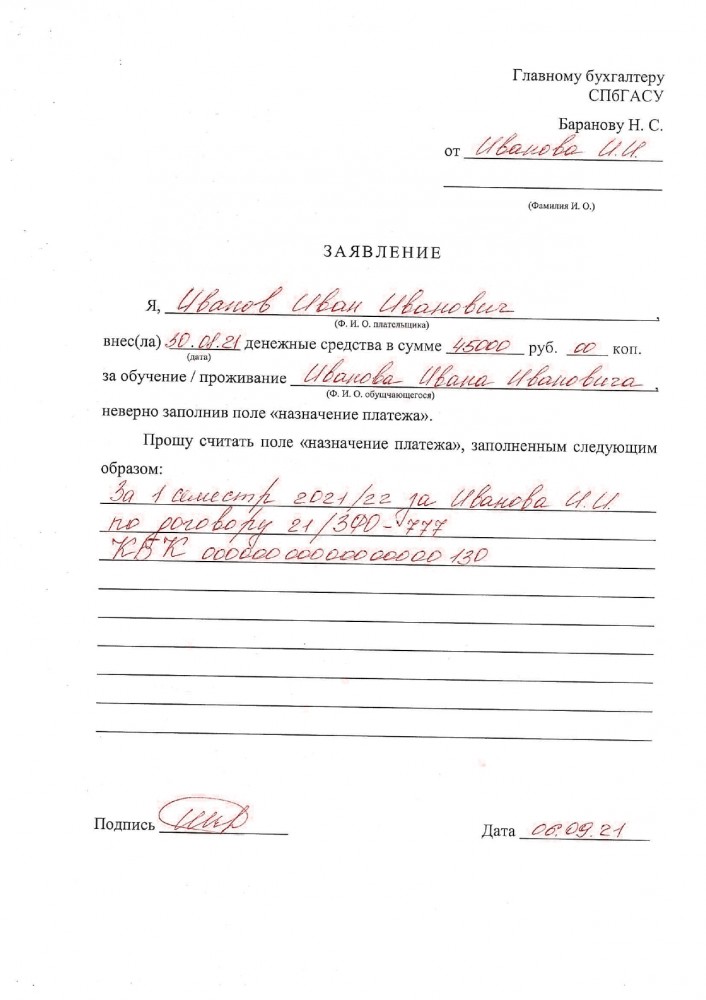 Главному бухгалтеру
СПбГАСУ
Баранову Н. С.
от Иванова И.И.
(Фамилия И. О.)
ЗАЯВЛЕНИЕ
Я, Иванов Иван Иванович,
(Ф. И. О. плательщика)
внес(ла) 30.08.21 денежные средства в сумме 45000 руб. 00 коп.
(дата)
за обучение / проживание Иванова Ивана Ивановича,
(Ф. И. О. обущчающегося)
неверно заполнив поле «назначение платежа».
Прошу считать поле «назначение платежа», заполненным следующим
образом:
За 1 семестр 2021/22 за Иванова И.И.
по договору 21/ЗФО-777
КБК 00000000000000000130
Подпись
Дата 06.09.21